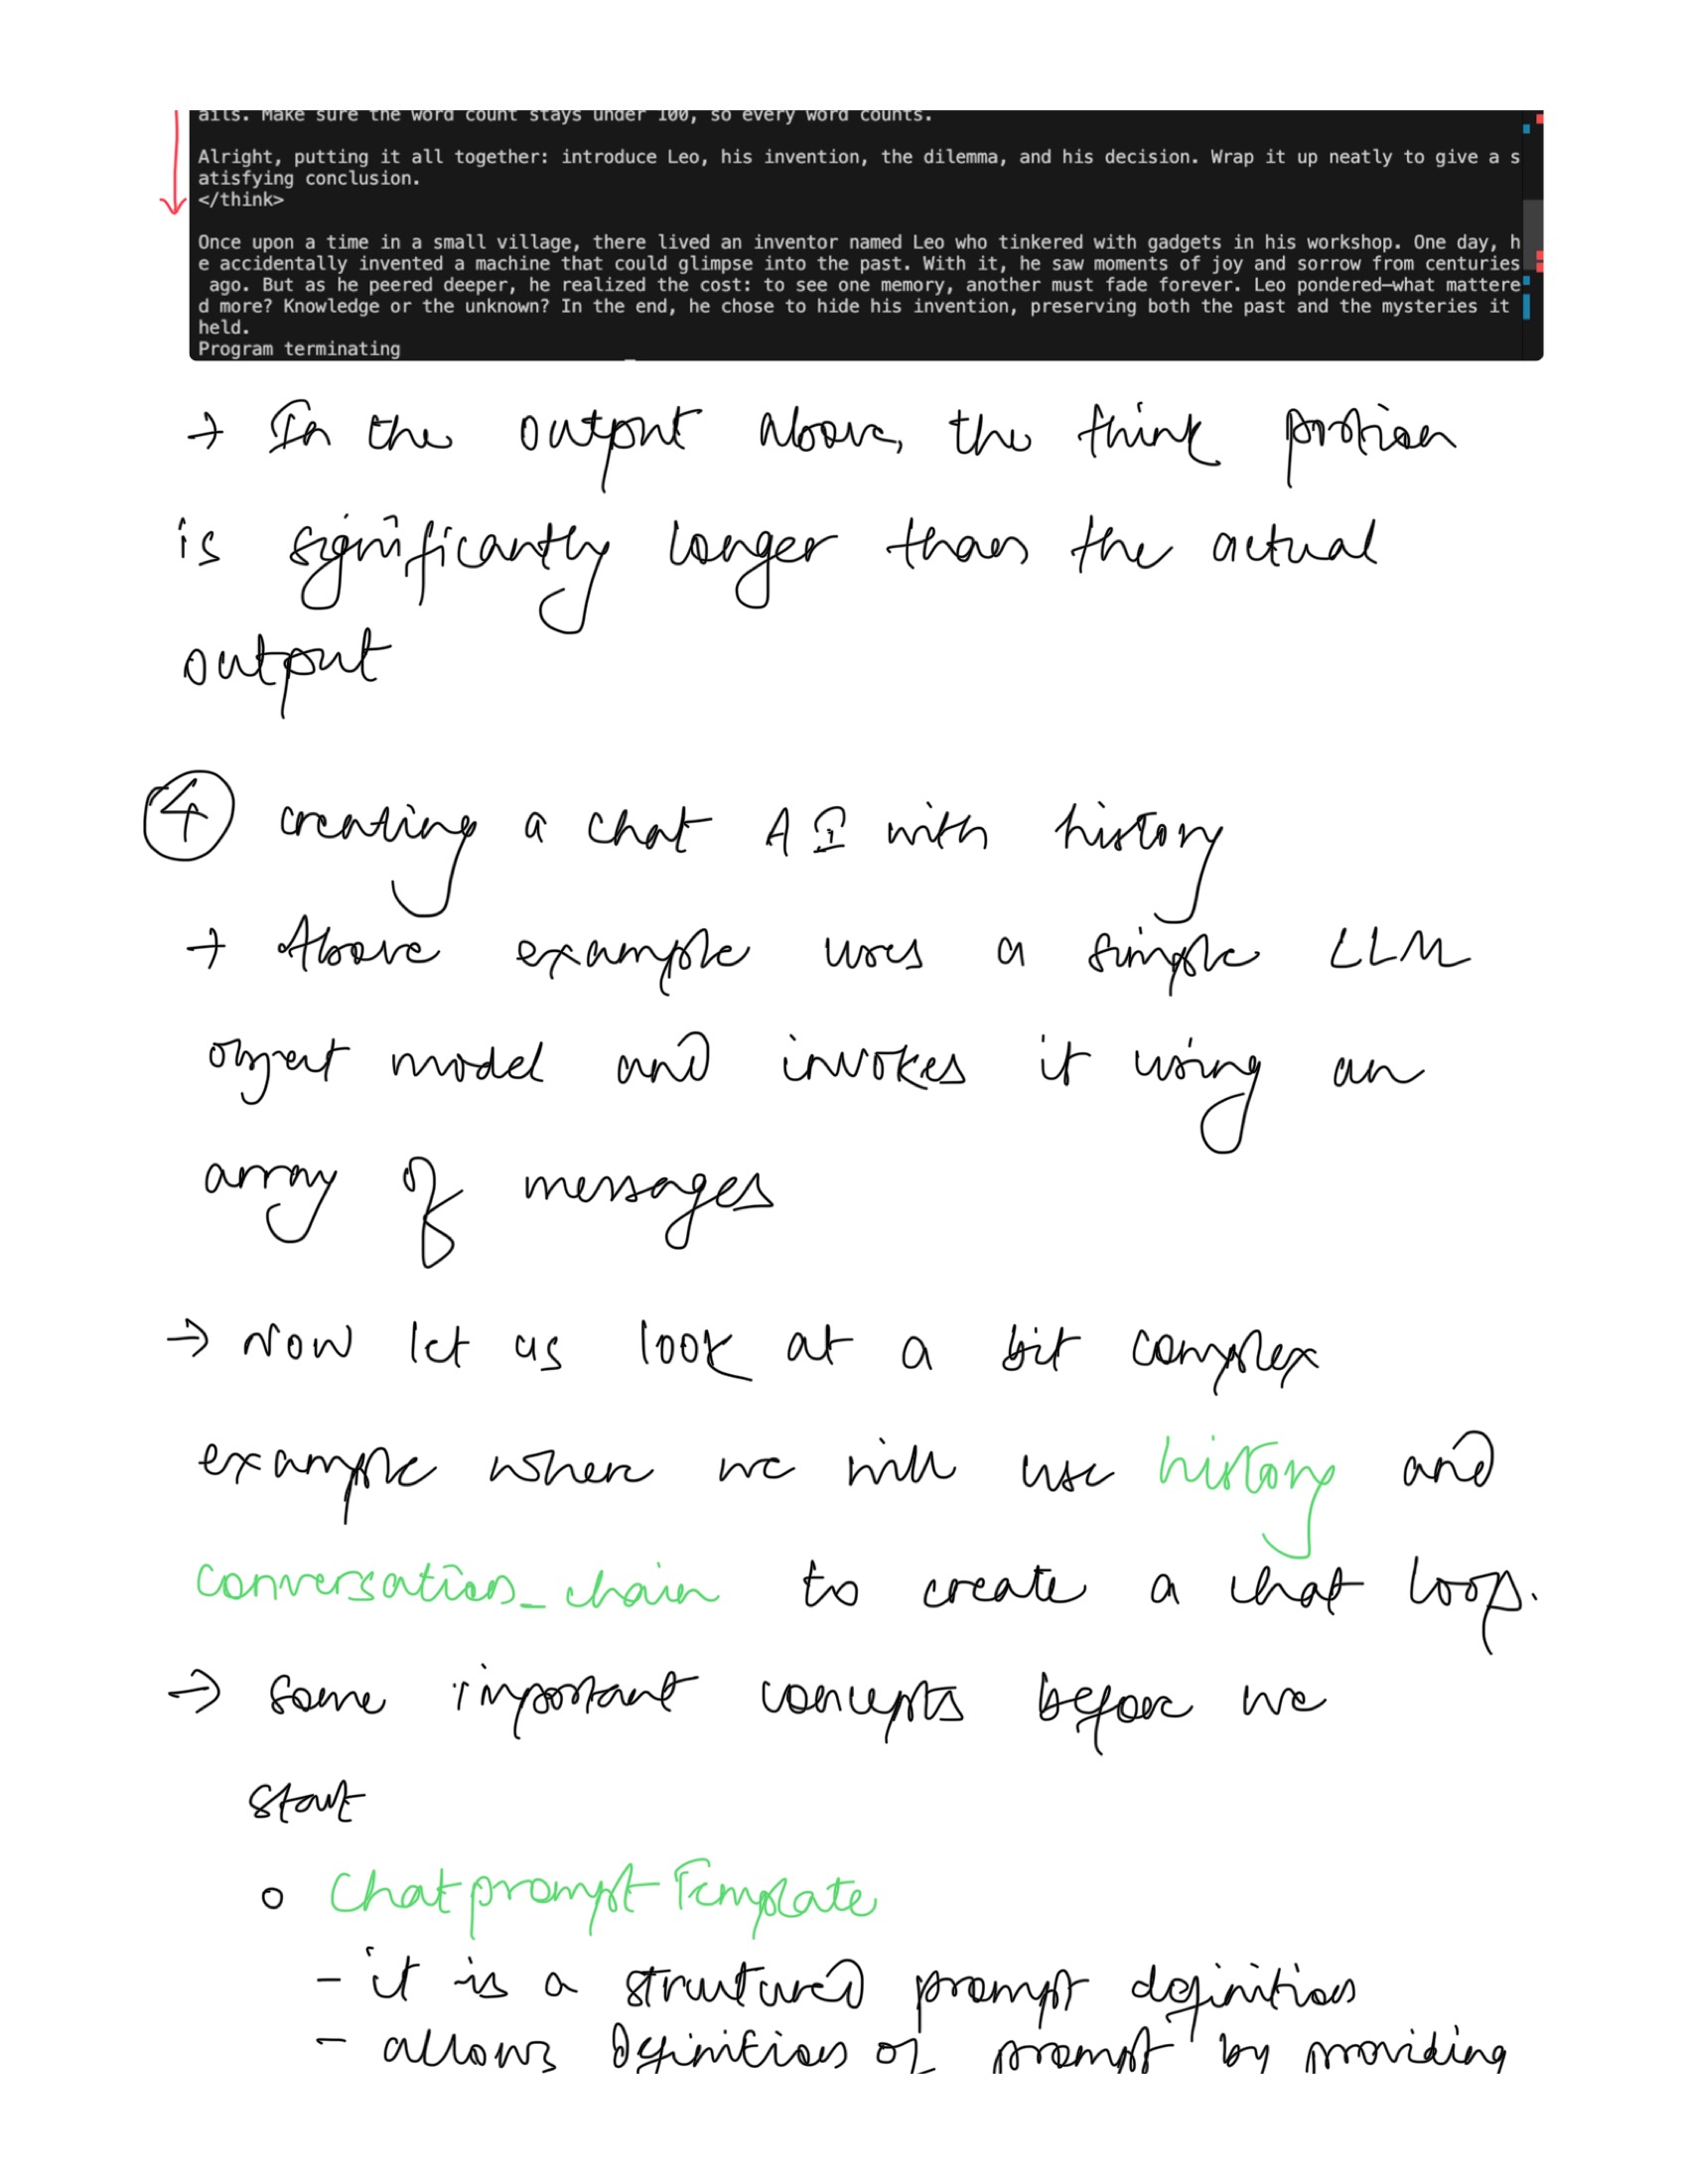 ails. Make sure the word count stays under 100, so every word counts.
Alright, putting it all together: introduce Leo, his invention, the dilemma, and his decision. Wrap it up neatly to give a s
atisfying conclusion.
</think>
Once upon a time in a small village, there lived an inventor named Leo who tinkered with gadgets in his workshop. One day, h
e accidentally invented a machine that could glimpse into the past. With it, he saw moments of joy and sorrow from centuries
ago. But as he peered deeper, he realized the cost: to see one memory, another must fade forever. Leo pondered—what mattere
d more? Knowledge or the unknown? In the end, he chose to hide his invention, preserving both the past and the mysteries it
held.
Program terminating
→ In the output above, the think portion
is significantly longer than the actual
output
④ creating a chat AI with history
→ Above example uses a simple LLM
object model and invokes it using an
array of messages
→ Now let us look at a bit complex
example where we will use history and
conversation_chain to create a chat loop.
→ some important concepts before we
start
o ChatpromptTemplate
- it is a structured prompt definition
- allows definition of prompt by providing